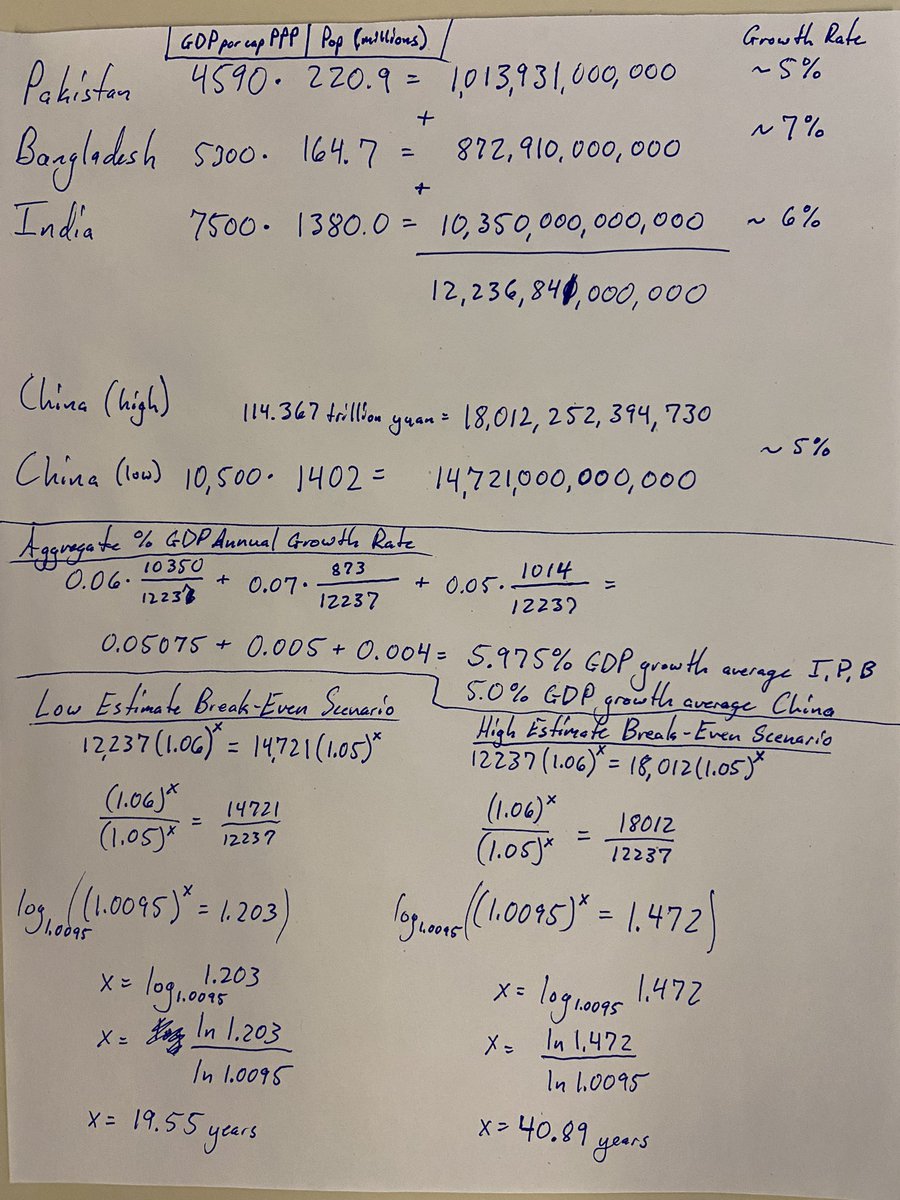 GDP per cap PPP | Pop (millions) Growth Rate
Pakistan 4590 · 220.9 = 1,013,931,000,000 ~5%
+
Bangladesh 5300 · 164.7 = 872,910,000,000 ~7%
+
India 7500 · 1380.0 = 10,350,000,000,000 ~6%
12,236,841,000,000
China (high) 114.367 trillion yuan = 18,012,252,394,730
~5%
China (low) 10,500 · 1402 = 14,721,000,000,000
Aggregate % GDP Annual Growth Rate
0.06 · 10350/12237 + 0.07 · 873/12237 + 0.05 · 1014/12237 =
0.05075 + 0.005 + 0.004 = 5.975% GDP growth average I, P, B
5.0% GDP growth average China
Low Estimate Break-Even Scenario
12,237(1.06)^x = 14,721(1.05)^x
(1.06)^x/(1.05)^x = 14721/12237
log_1.0095((1.0095)^x = 1.203)
x = log_1.0095 1.203
x = ln 1.203/ln 1.0095
x = 19.55 years
High Estimate Break-Even Scenario
12237(1.06)^x = 18,012(1.05)^x
(1.06)^x/(1.05)^x = 18012/12237
log_1.0095((1.0095)^x = 1.472)
x = log_1.0095 1.472
x = ln 1.472/ln 1.0095
x = 40.89 years